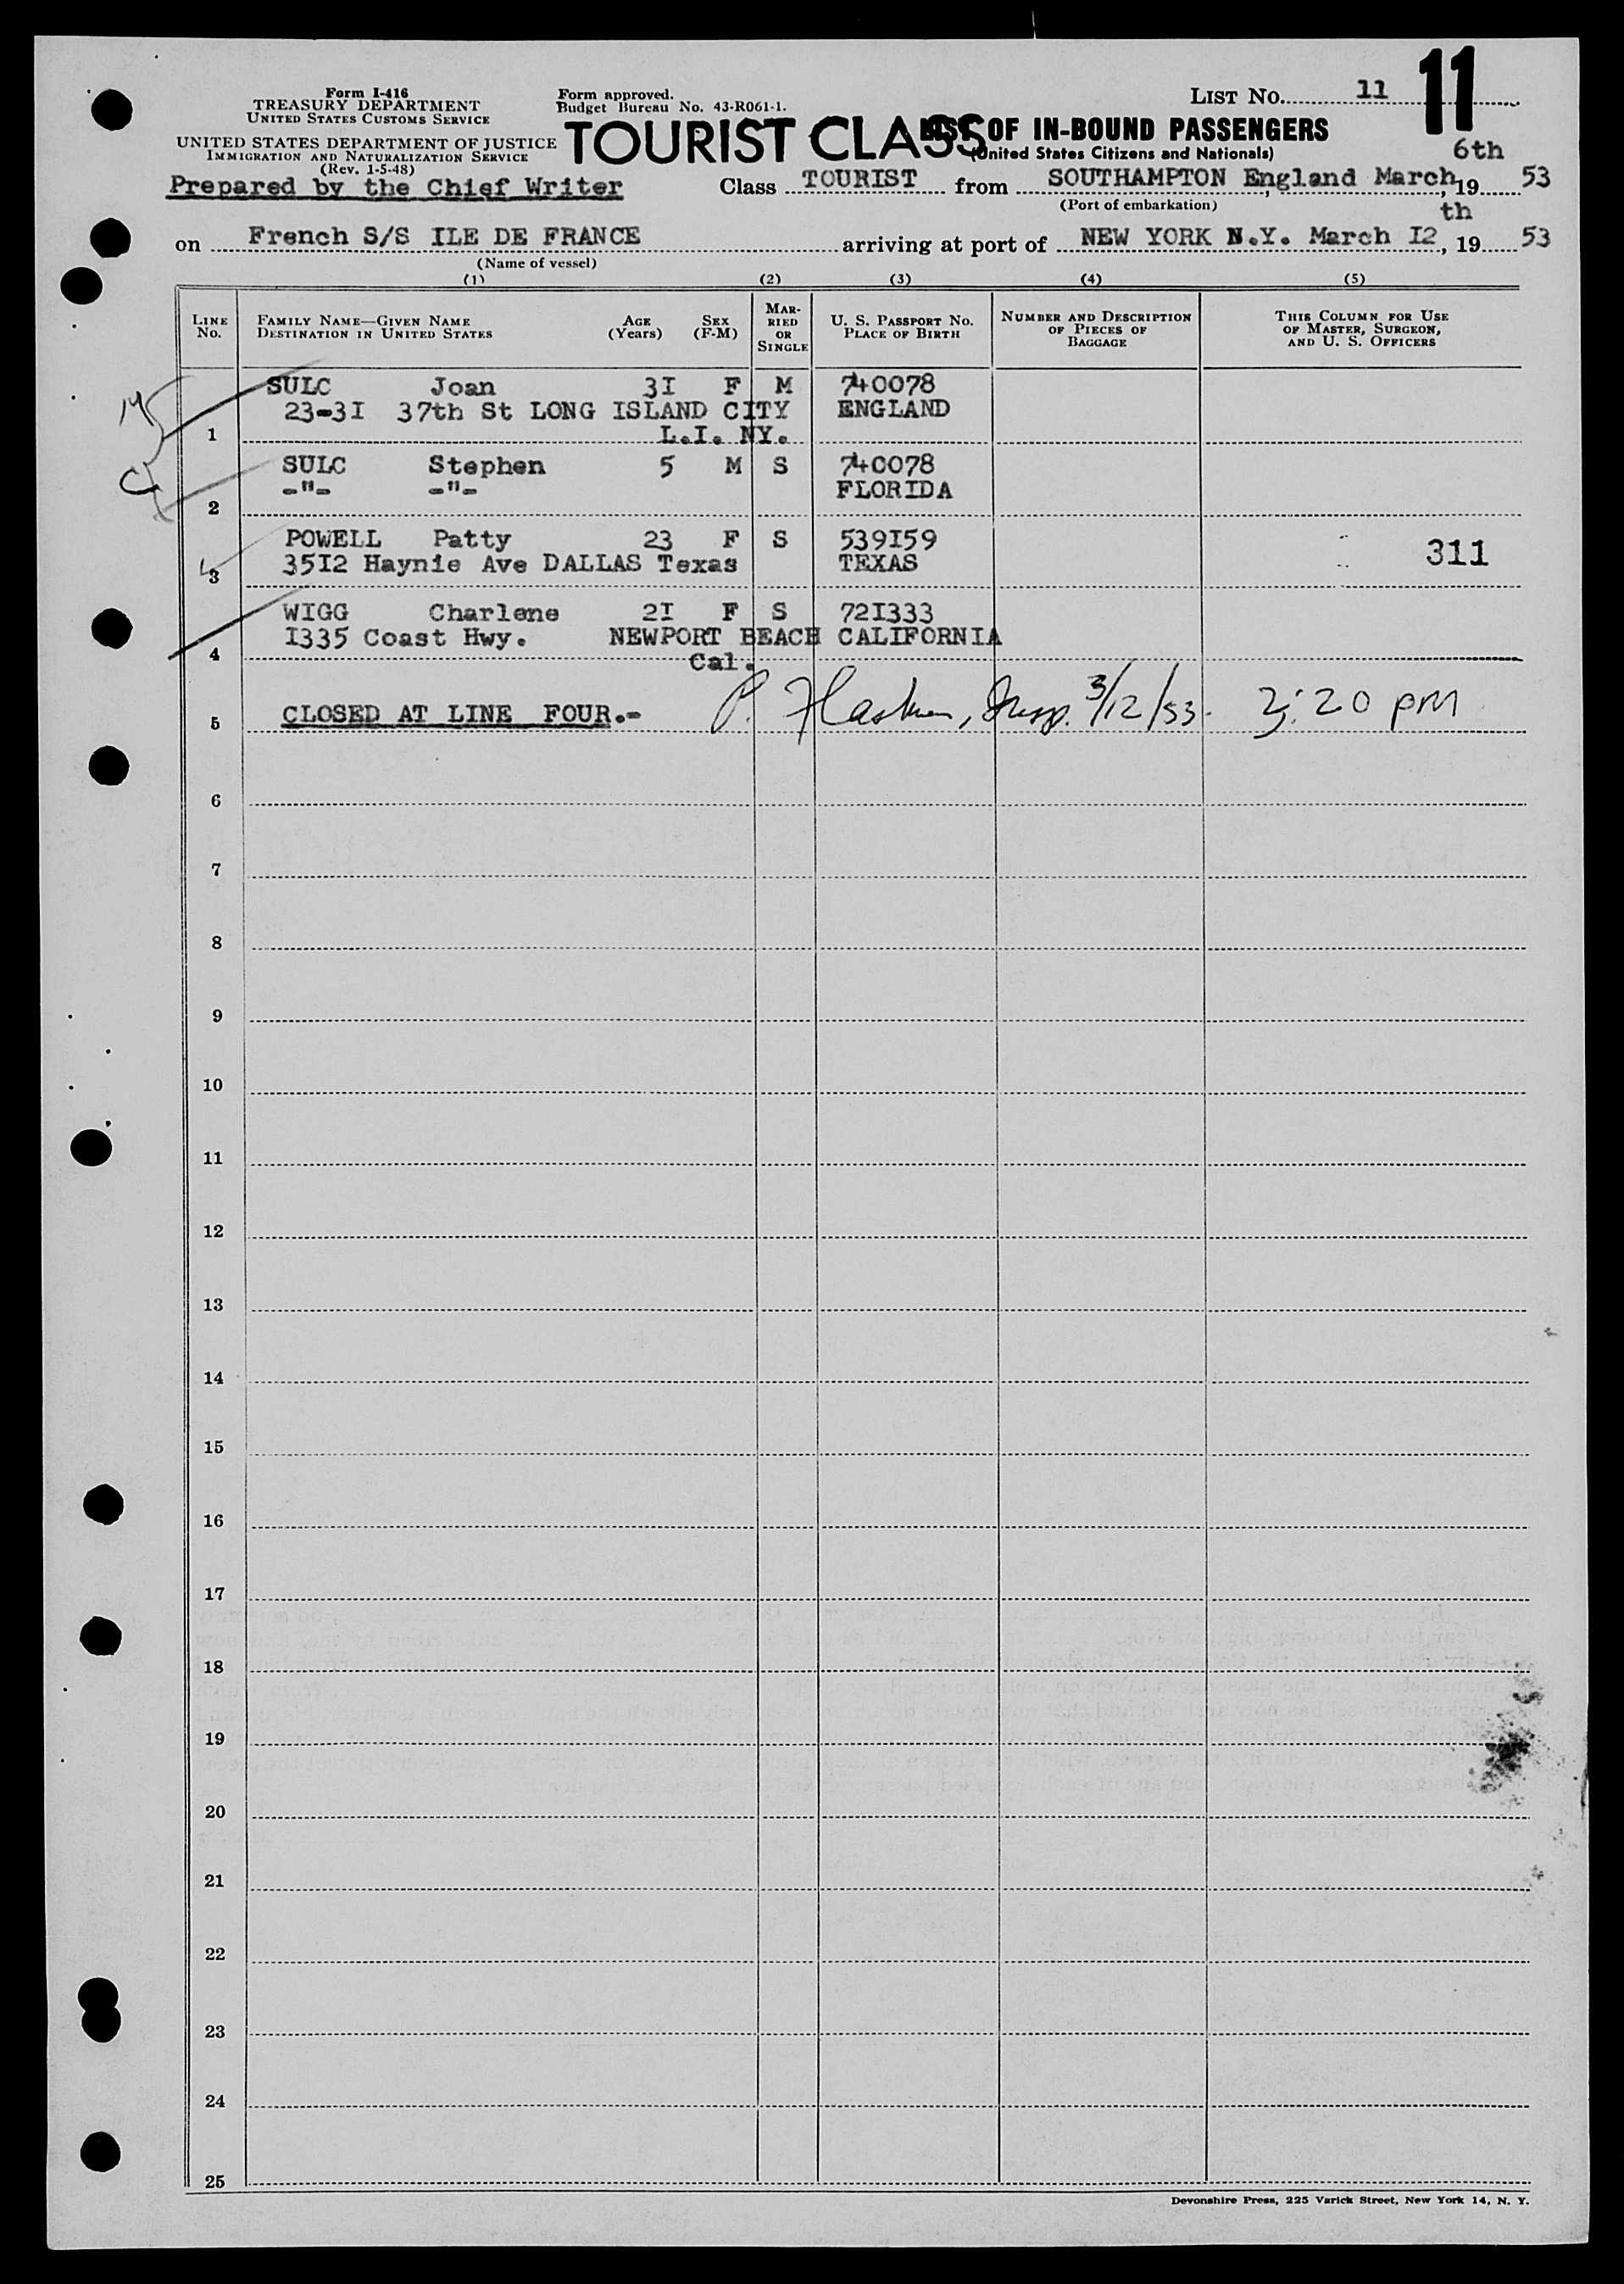 Form I-416
TREASURY DEPARTMENT
UNITED STATES CUSTOMS SERVICE
UNITED STATES DEPARTMENT OF JUSTICE
IMMIGRATION AND NATURALIZATION SERVICE
(Rev. 1-5-48)
Prepared by the Chief Writer
Form approved.
Budget Bureau No. 43-R061-1.
LIST No. 11
11
TOURIST CLASS
LIST OF IN-BOUND PASSENGERS
(United States Citizens and Nationals)
Class TOURIST from SOUTHAMPTON England March 6th, 19 53
(Port of embarkation)
on French S/S ILE DE FRANCE arriving at port of NEW YORK N.Y. March I2 th, 19 53
(Name of vessel)
(1) (2) (3) (4) (5)
LINE No.
FAMILY NAME—GIVEN NAME
DESTINATION IN UNITED STATES
AGE (Years)
SEX (F-M)
MAR-RIED OR SINGLE
U. S. PASSPORT NO.
PLACE OF BIRTH
NUMBER AND DESCRIPTION OF PIECES OF BAGGAGE
THIS COLUMN FOR USE OF MASTER, SURGEON, AND U. S. OFFICERS
SULC Joan 3I F M 740078
23-3I 37th St LONG ISLAND CITY ENGLAND
1 L.I. NY.
SULC Stephen 5 M S 740078
-"- -"- FLORIDA
2
POWELL Patty 23 F S 539I59
35I2 Haynie Ave DALLAS Texas TEXAS 311
3
WIGG Charlene 2I F S 72I333
I335 Coast Hwy. NEWPORT BEACH CALIFORNIA
4 Cal.
5 CLOSED AT LINE FOUR.- P. 3/12/53 3:20 pm
6
7
8
9
10
11
12
13
14
15
16
17
18
19
20
21
22
23
24
25
Devonshire Press, 225 Varick Street, New York 14, N. Y.